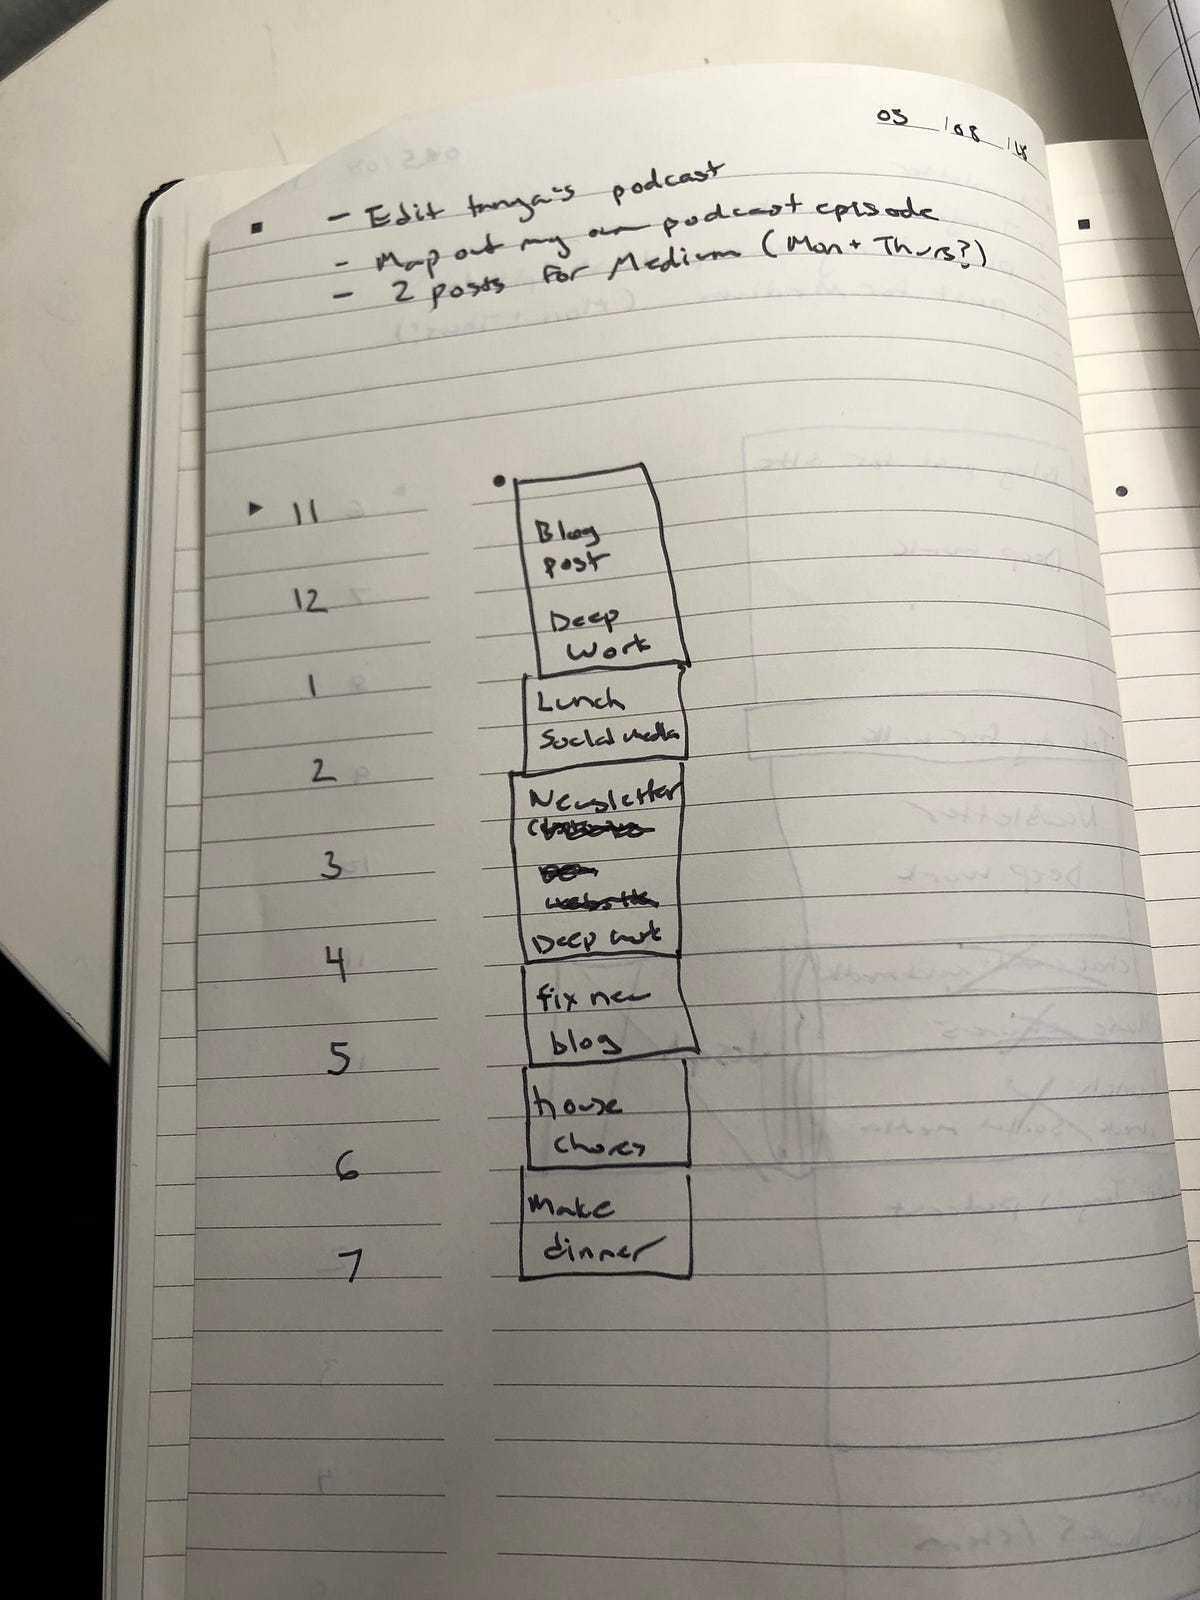 05/08/18
- Edit tanya's podcast
- Map out my own podcast episode
- 2 posts for Medium (Mon + Thurs?)
11
Blog
post
12
Deep
work
1
Lunch
Social media
2
Newsletter
3
website
4
Deep work
fix new
blog
5
house
chores
6
Make
dinner
7